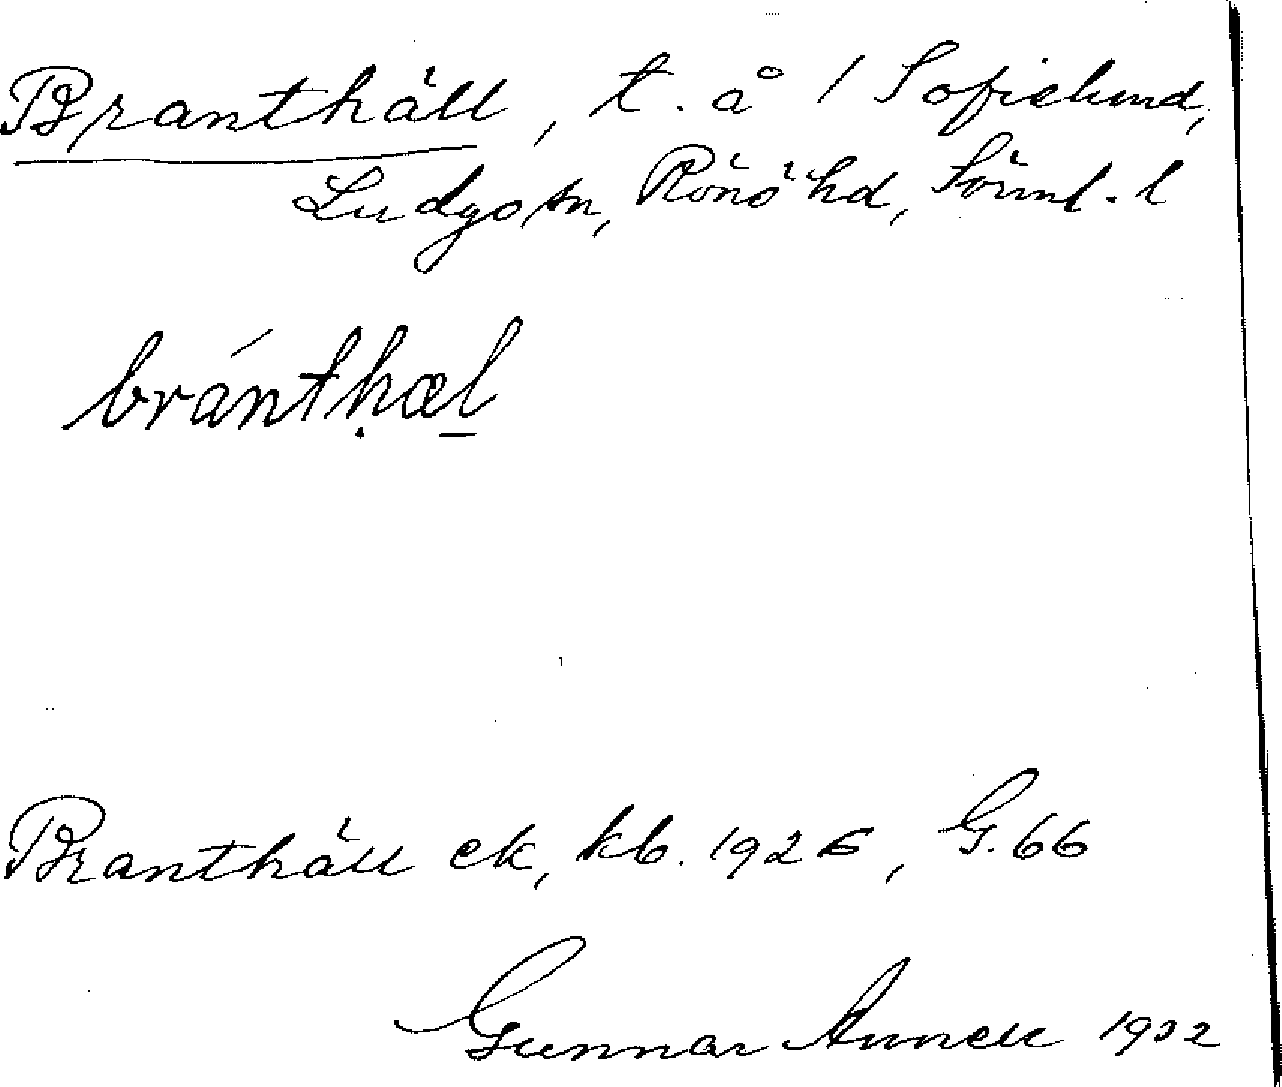 Branthäll, t. å 1 Sofielund,
Ludgo sn, Rönö hd, Södml. l
bránthæl
Branthäll ek, kb. 1926, G. 66
Gunnar 1932